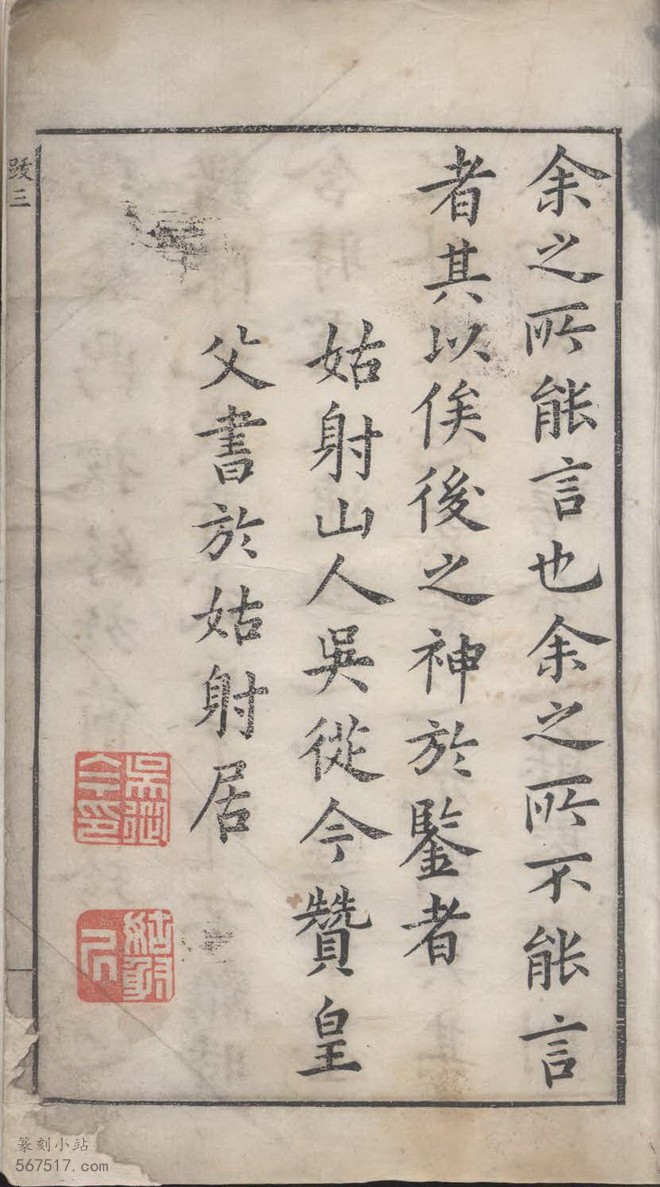 余之所能言也余之所不能言
者其以俟後之神於鑒者
姑射山人吳從今贊皇
父書於姑射居
跋三
吳從今印
篆刻小站
567517.com